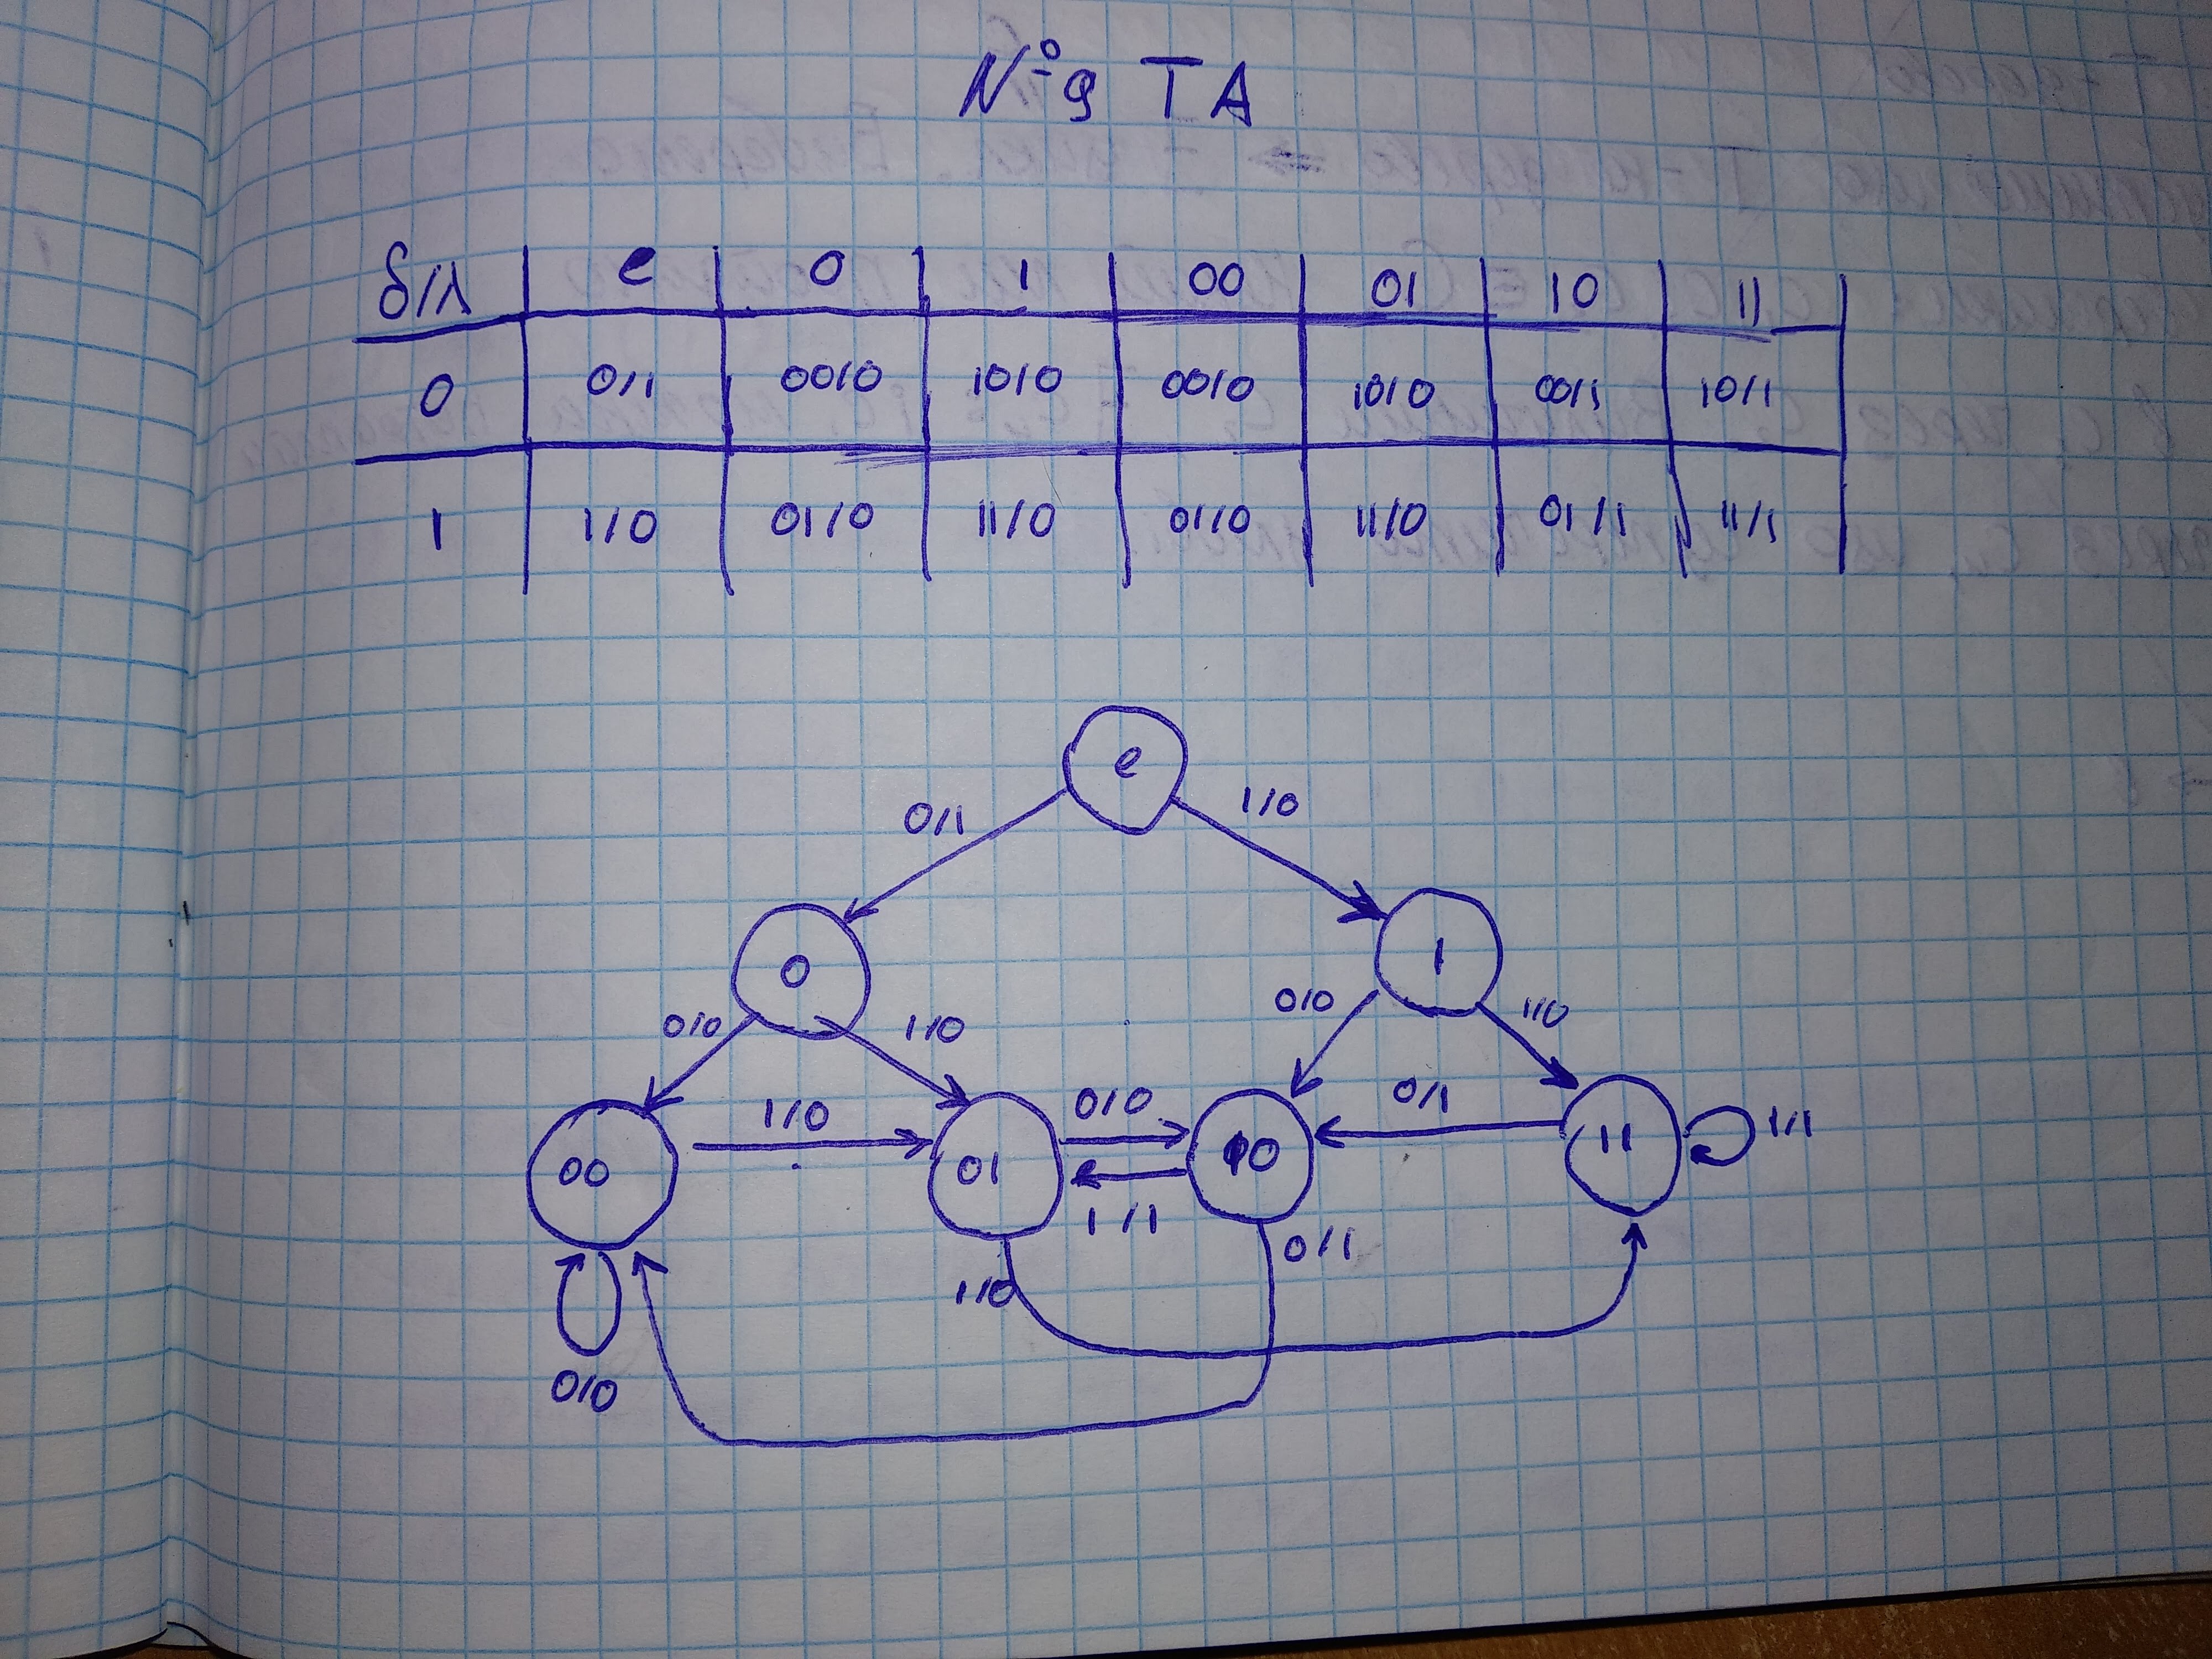 №9 TA
δ/λ e 0 1 00 01 10 11
0 0/1 00/0 10/0 00/0 10/0 00/1 10/1
1 1/0 01/0 11/0 01/0 11/0 01/1 11/1
e
0/1 1/0
0 1
0/0 1/0 0/0 1/0
1/0 0/0 0/1 1/1
00 01 10 11
1/1 0/1
1/0
0/0